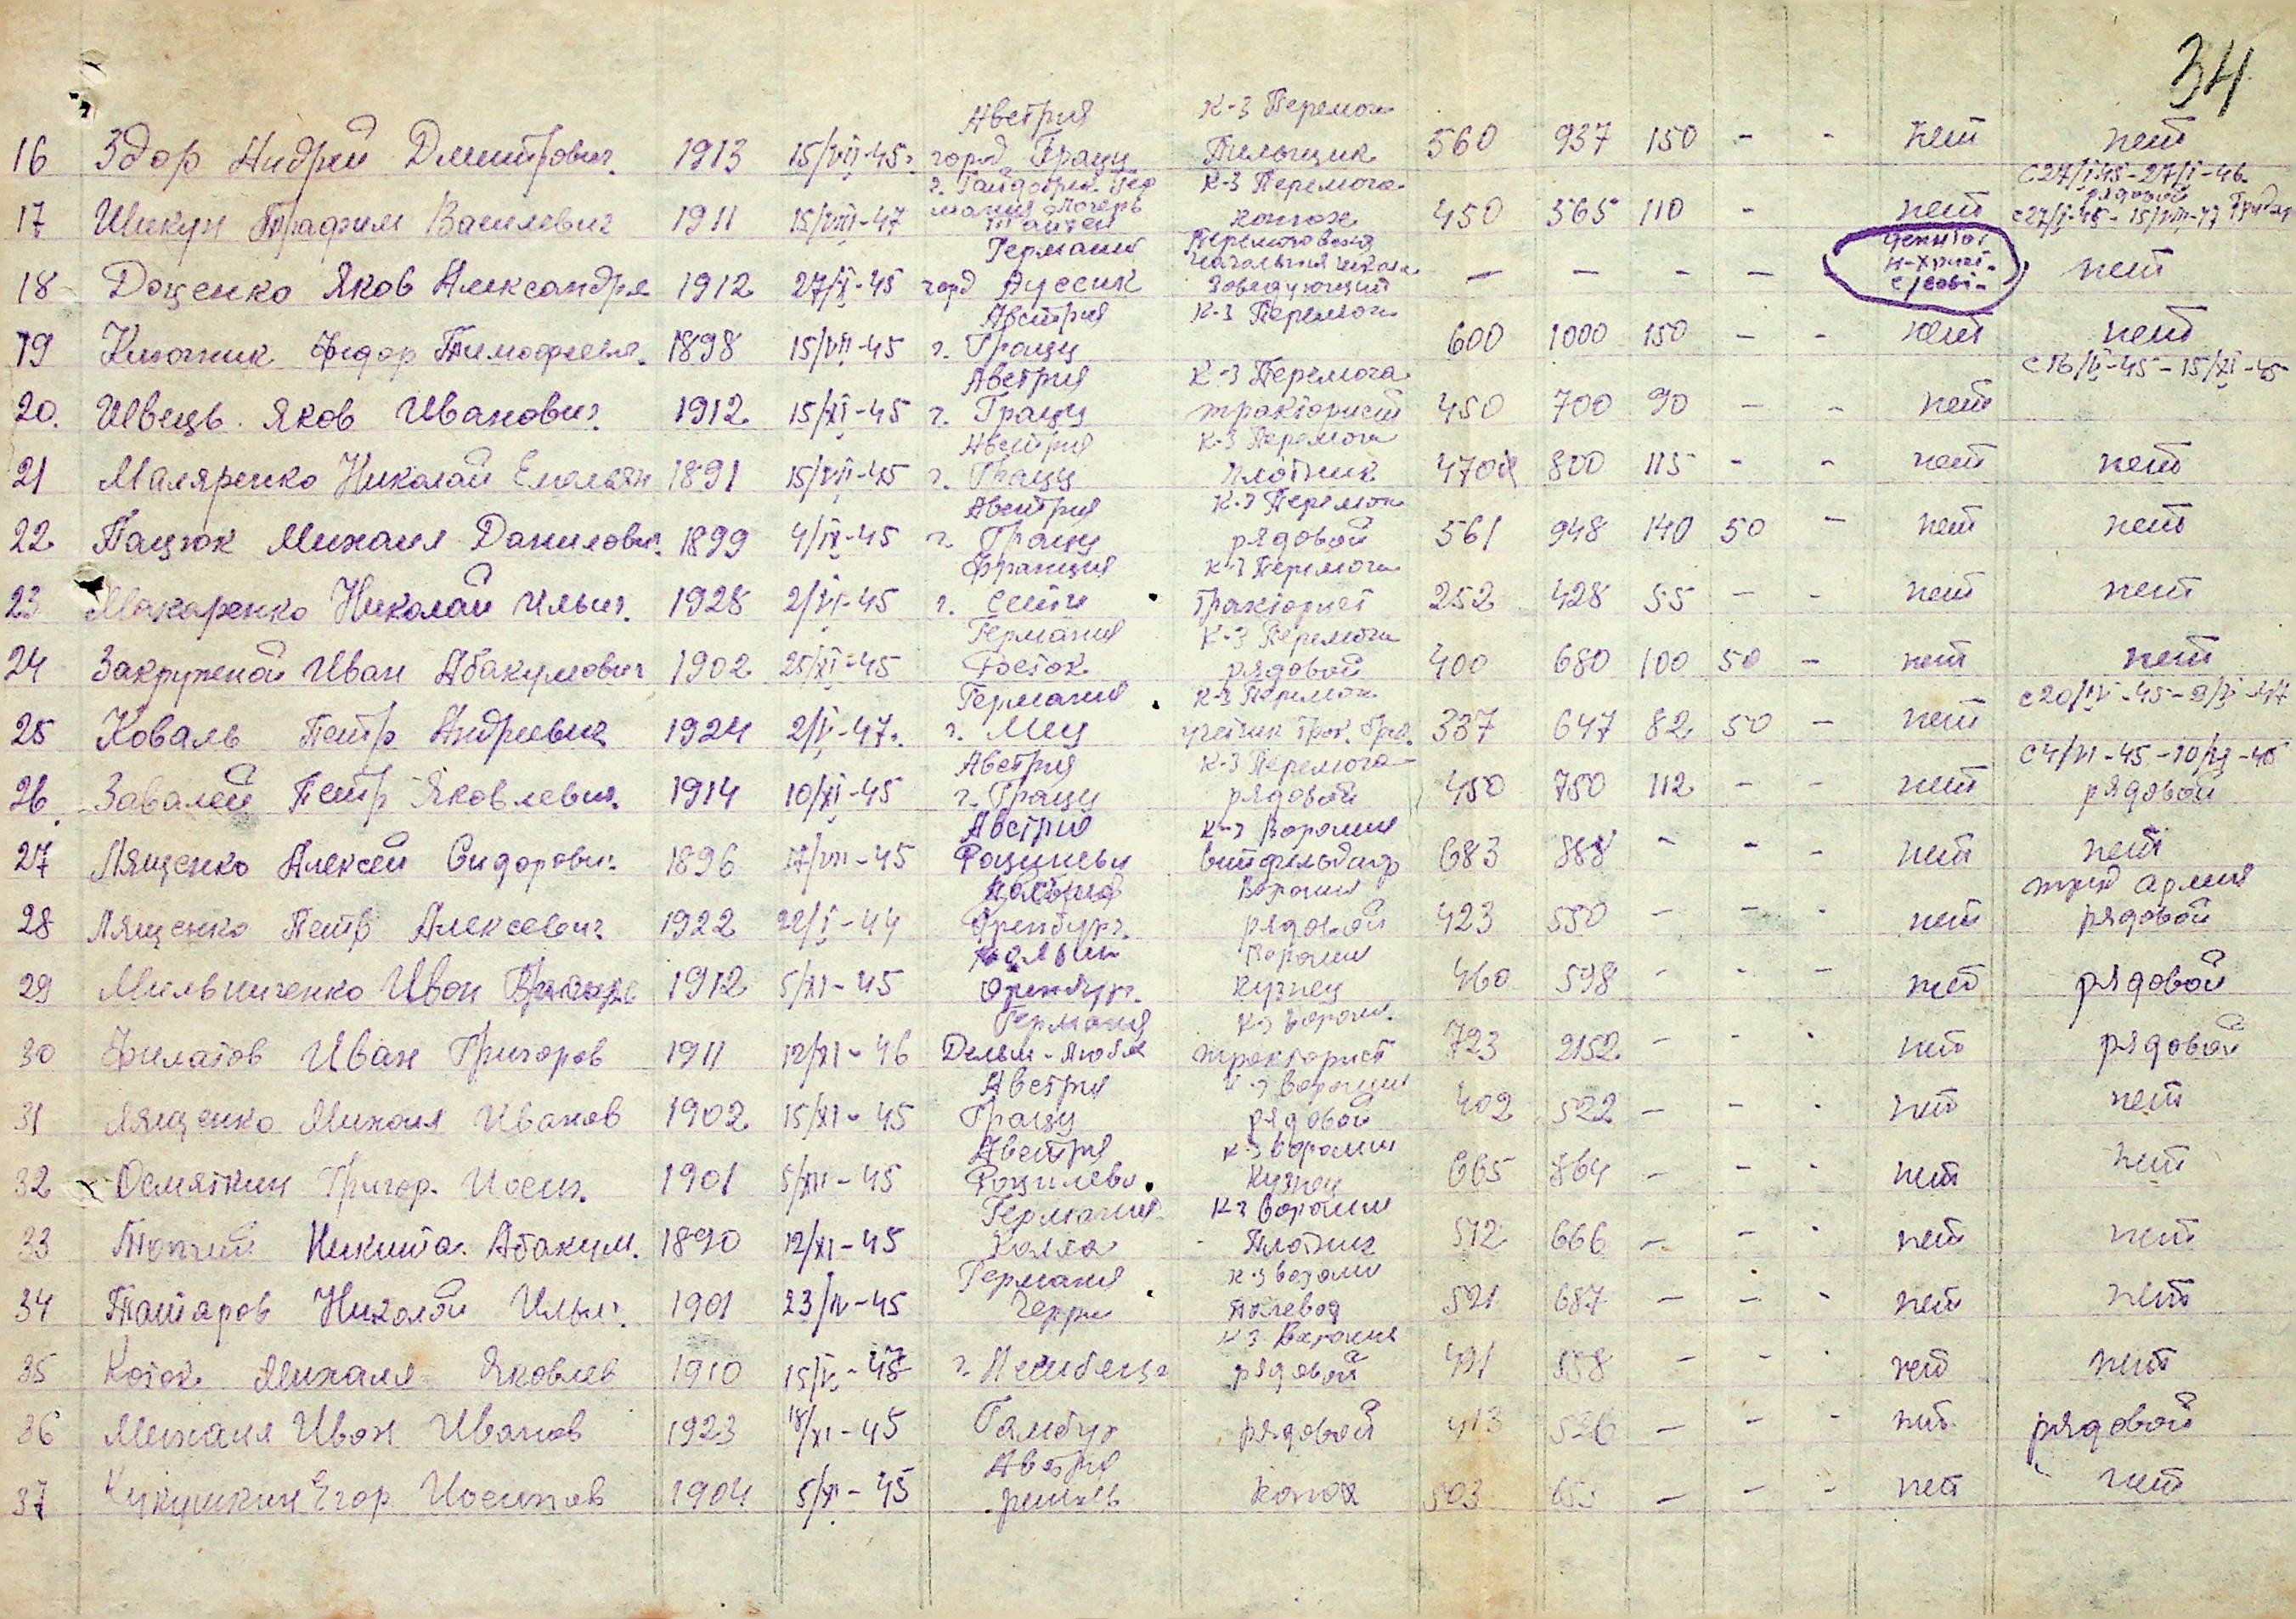 34
Австрия К-З Перемога
16 Здор Андрей Дмитрович. 1913 15/VII-45. город Грацц 560 937 150 - - нет нет
К-З Перемога. С 27/I-45-27/I-46.
рядовой
17 Шикун Трафим Василевич 1911 15/VIII-47 конюх 450 565 110 - нет
Германия Перемоговская
начальная школа
18 Доценко Яков Александрв 1912 27/X-45 горд Ауссик Заведующий — — - - - нет
Австрия К-З Перемога
19 Ключник Федор Тимофеевич. 1898 15/VII-45 г. Грацц 600 1000 150 - - нет нет
Австрия К-З Перемога. С 16/V-45-15/XI-45
20. Швець Яков Иванович. 1912 15/XI-45 г. Грацц тракторист 450 700 90 - - нет
Австрия К-З Перемога
21 Маляренко Николай Емельян 1891 15/VII-45 г. Грацц плотник 470 800 115 - - нет нет
Австрия К-З Перемога
22 Пацюк Михаил Данилович. 1899 4/IX-45 г. Грацц рядовой 561 948 140 50 - нет нет
Франция К-З Перемога
23 Макаренко Николай Ильич. 1928 2/VI-45 г. тракторист 252 428 55 - - нет нет
Германия К-З Перемога
24 Закружной Иван Абакумович 1902 25/XI-45 Росток рядовой 400 680 100 50 - нет нет
Германия К-З Перемога С 20/IV-45-2/V-47
25 Коваль Петр Андреевич 1924 2/V-47. г. Мец учетчик трак. бриг. 337 647 82 50 - нет
Австрия К-З Перемога С 4/VI-45-10/XI-45
26 Завалей Петр Яковлевич. 1914 10/XI-45 г. Грацц рядовой 450 750 112 - - нет рядовой
Австрия К-З Ворошил
27 Лященко Алексей Сидорович. 1896 17/VII-45 683 888 - - - нет нет
Ворошил труд армия
28 Лященко Петр Алексеевич 1922 22/V-44 рядовой 423 550 - - - нет рядовой
Ворошил
29 Мельниченко Иван 1912 5/XI-45 кузнец 460 598 - - - нет рядовой
Германия К-З Ворошил.
30 Филатов Иван Григоров 1911 12/XI-46 тракторист 723 2152 - - - нет рядовой
Австрия К-З Ворошил
31 Лященко Михаил Иванов 1902 15/XI-45 Грацц рядовой 402 522 - - - нет нет
Австрия К-З Ворошил
32 Осмяткин Григор. Иосип. 1901 5/XII-45 кузнец 665 864 - - - нет нет
Германия К-З Ворошил
33 Никита Абакум. 1890 12/XI-45 плотник 512 666 - - - нет нет
Германия К-З Ворошил
34 Татаров Николай Ильич. 1901 23/IV-45 полевод 521 687 - - - нет нет
К-З Ворошил
35 Коток Михаил Яковлев 1910 рядовой 491 558 - - - нет нет
36 Михаил Иван Иванов 1923 18/XI-45 Гамбург рядовой 413 526 - - - нет рядовой
Австрия
37 Кукушкин Егор Иосипов 1904 5/XI-45 конюх 503 653 - - - нет нет